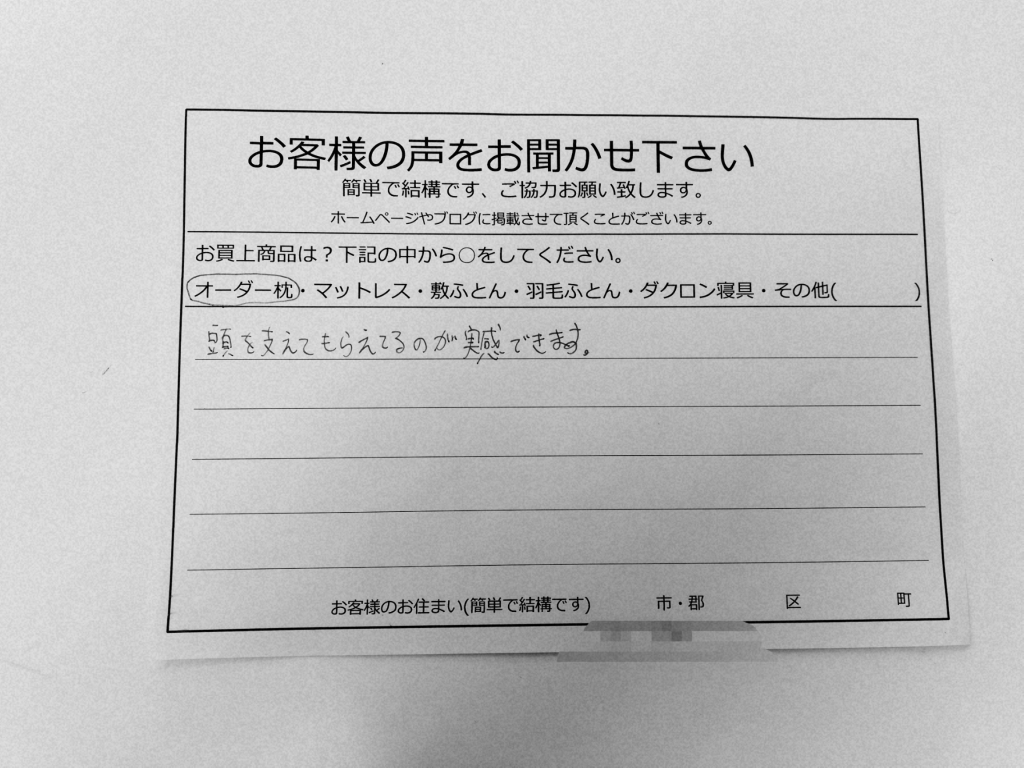 お客様の声をお聞かせ下さい
簡単で結構です、ご協力お願い致します。
ホームページやブログに掲載させて頂くことがございます。
お買上商品は？下記の中から○をしてください。
オーダー枕・マットレス・敷ふとん・羽毛ふとん・ダクロン寝具・その他(　　　　)
頭を支えてもらえてるのが実感できます。
お客様のお住まい(簡単で結構です)　　　市・郡　　　　区　　　　　町